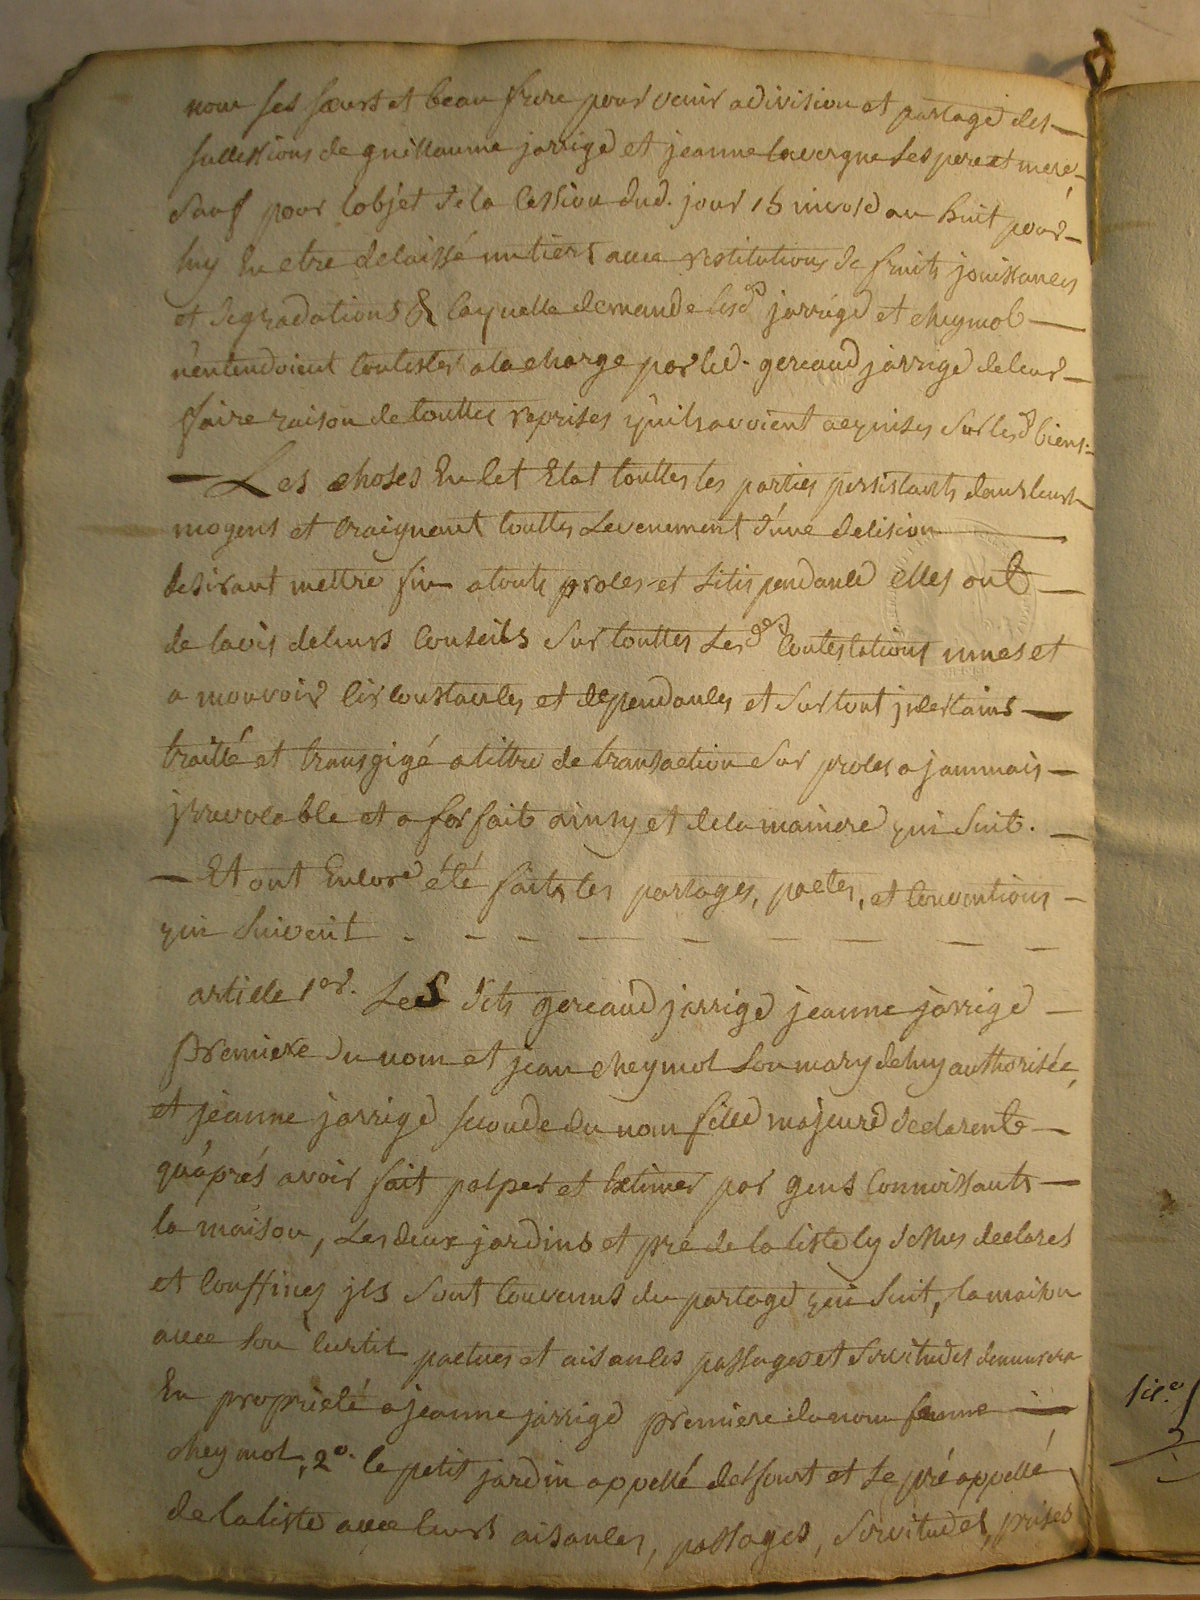 nom ses sœurs et beau frere pour venir a division et partage des
successions de guillaume jarrige et jeanne lavergne ses pere et mere
sauf pour lobjet de la cession dud. jour 15 nivose an huit pour
luy en etre delaissé un tiers avec restitutions de fruits jouissances
et degradations & laquelle demande lesd jarrige et cheymol
n'entendoient contester a la charge par led. gereaud jarrige de leur
faire raison de touttes reprises qu'ils avoient acquises sur lesd biens.
Les choses en cet Etat touttes les parties persistants dans leurs
moyens et craignant touttes levenement d'une decision
desirant mettre fin a touts proces et litis pendance elles ont
de lavis de leurs conseils sur touttes lesdes contestations mues et
a mouvoir circonstances et dependances et sur tout jncertains
traitté et transgigé a tittre de transaction sur proces a jammais
jrrevocable et a forfait ainsy et de la maniere qui suit.
Et ont Encore été faits les partages, pactes, et conventions
qui suivent
article 1er. Les dits gereaud jarrige jeanne jarrige
premiere du nom et jean cheymol son mary de luy authorisée,
et jeanne jarrige seconde du nom fille majeure declarent
qu'aprés avoir fait palper et Extimer par gens connoissants
la maison, les deux jardins et pré de la liste cy dessus declarés
et conffinés jls sont convenus du partage qui suit, la maison
avec son curtil pactues et aisances passages et servitudes demeurera
En proprieté a jeanne jarrige premiere du nom femme
cheymol, 2°. le petit jardin appellé del four et le pré appellé
de la liste avec leurs aisances, passages, servitudes, prises